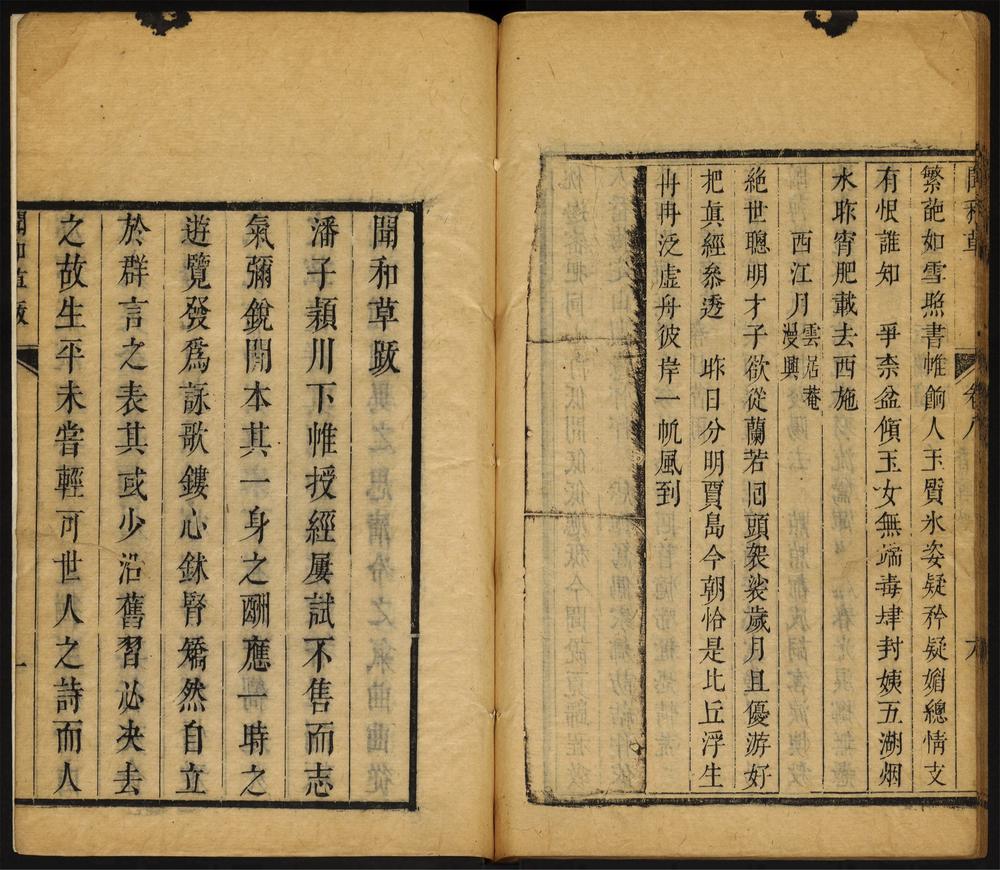 聞和草
卷八
六
繁葩如雪照書帷餉人玉質氷姿疑矜疑媚總情支
有恨誰知　爭柰盆傾玉女無端毒肆封姨五湖烟
水昨宵肥載去西施
西江月雲居菴漫興
絶世聰明才子欲從蘭若回頭袈裟歲月且優游好
把眞經叅透　昨日分明賈島今朝恰是比丘浮生
冉冉泛虛舟彼岸一帆風到
聞和草跋
潘子穎川下帷授經屢試不售而志
氣彌銳閒本其一身之酬應一時之
遊覽發爲詠歌鏤心鉥腎矯然自立
於群言之表其或少沿舊習必决去
之故生平未嘗輕可世人之詩而人
聞和草跋
一